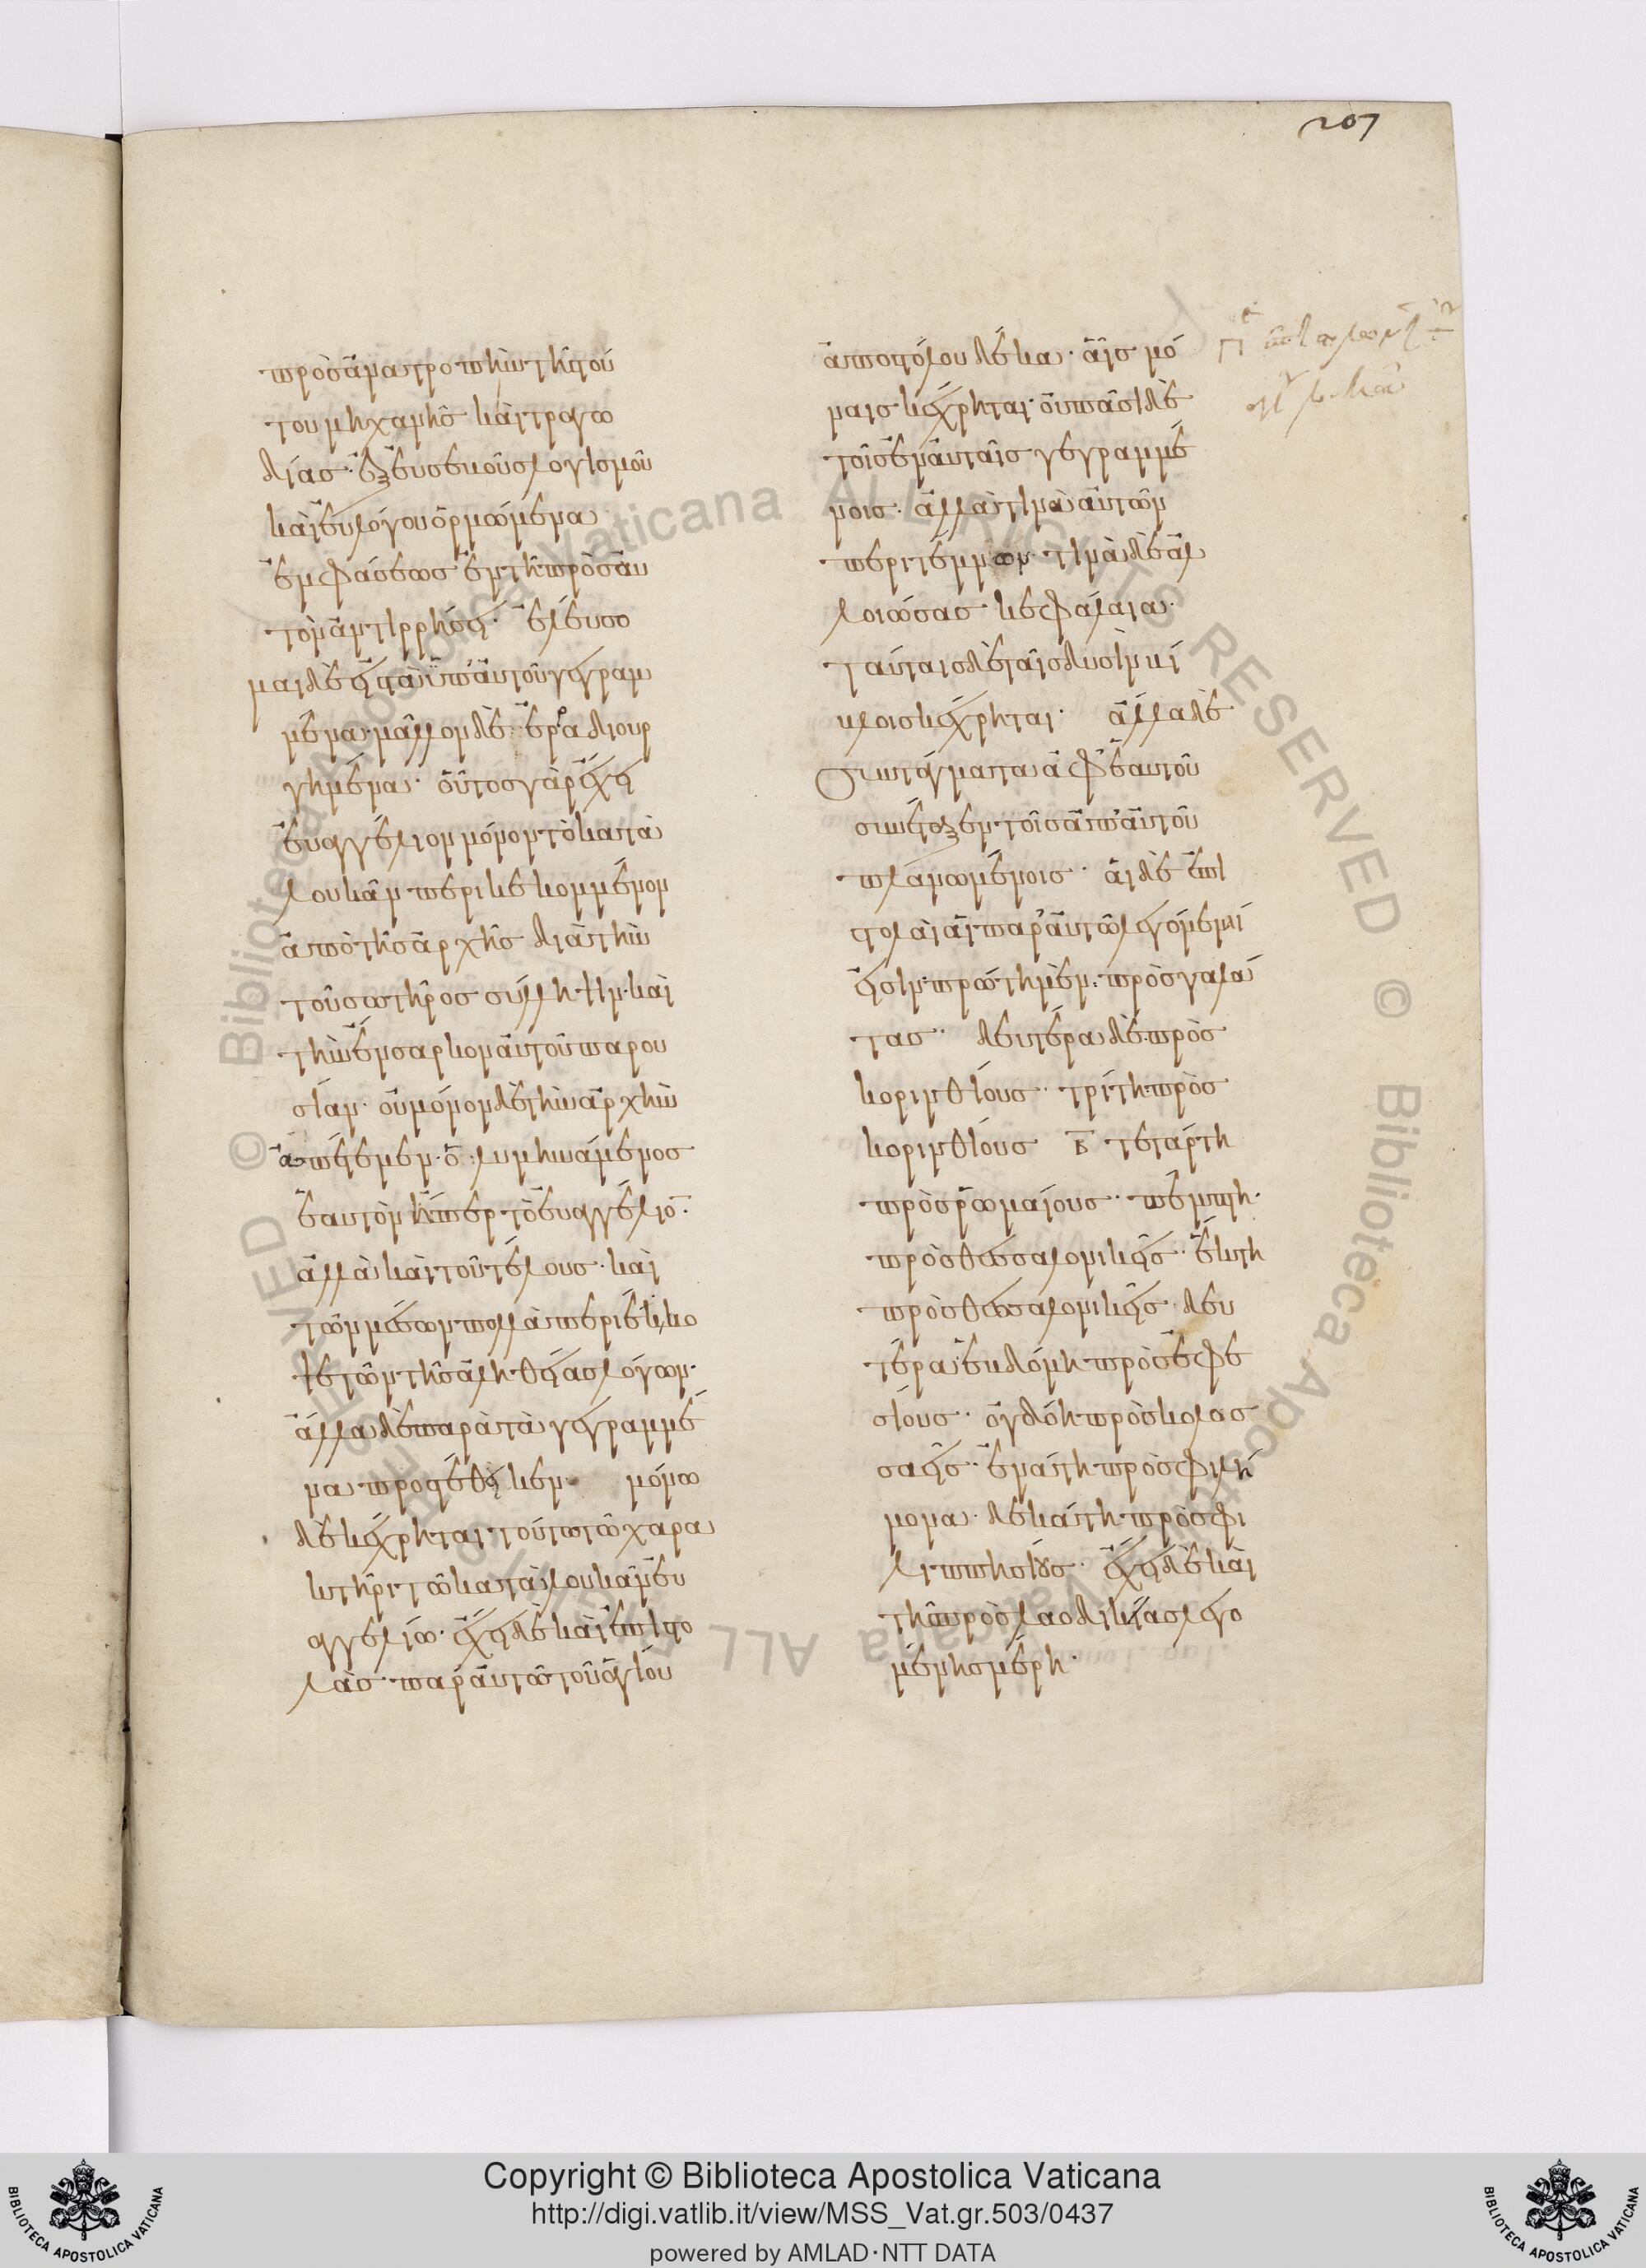 πρὸς ἀνατροπὴν τῆς τού
του μηχανῆς καὶ τραγω
δίας· ἐξ εὐσεβοῦς λογισμοῦ
καὶ εὐλόγου ὁρμώμενα
ἐμφάσεως ἐν τῆ πρὸς αὐ
τὸν ἀντιρρήσει· ἐλεύσο
μαι δὲ εἰς τὰ ὑπ' αὐτοῦ γεγραμ
μένα· μᾶλλον δὲ ἐρραδιουρ
γημένα· οὗτος γὰρ ἔχει
εὐαγγέλιον μόνον τὸ κατὰ
λουκᾶν περικεκομμένον
ἀπὸ τῆς ἀρχῆς διὰ τὴν
τοῦ σωτῆρος σύλληψιν· καὶ
τὴν ἔνσαρκον αὐτοῦ παρου
σίαν· οὐ μόνον δὲ τὴν ἀρχὴν
ἀπέτεμεν· ὁ λυμηνάμενος
ἑαυτὸν ἤπερ τὸ εὐαγγέλιο̅·
ἀλλὰ καὶ τοῦ τέλους· καὶ
τῶν μέσων πολλὰ περιέκο
ψε τῶν τῆς ἀληθείας λόγων·
ἄλλα δὲ παρὰ τὰ γεγραμμέ
να προστέθεικεν μόνω
δὲ κέχρηται τούτω τῶ χαρα
κτῆρι τῶ κατὰ λουκᾶν εὐ
αγγελίω· ἔχει δὲ καὶ ἐπιστο
λὰς παρ' αὐτῶ τοῦ ἁγίου
207
ἀποστόλου δέκα· αἷς μό
ναις κέχρηται· οὐ πᾶσι δὲ
τοῖς ἐν αὐταῖς γεγραμμέ
νοις· ἀλλὰ τινὰ αὐτῶν
περιτέμνων· τινὰ δὲ ἀλ
λοιώσας κεφάλαια·
ταύταις δὲ ταῖς δυσὶν βί
βλοις κέχρηται· ἄλλα δὲ
συντάγματα ἀφ' ἑαυτοῦ
συνέταξεν τοῖς ἀπ' αὐτοῦ
πλανωμένοις· αἱ δὲ ἐπι
στολαὶ αἱ παρ' αὐτῶ λεγόμεναί
εἰσιν· πρώτη μὲν· πρὸς γαλά
τας· δευτέρα δὲ πρὸς
κορινθίους· τρίτη πρὸς
κορινθίους β̅ τετάρτη
πρὸς ῥωμαίους· πέμπτη·
πρὸς θεσσαλονικεῖς· ἕκτη
πρὸς θεσσαλονικεῖς δευ
τέρα· ἑβδόμη πρὸς ἐφε
σίους· ὀγδόη πρὸς κολασ
σαεῖς· ἐνάτη πρὸς φιλή
μονα· δεκάτη πρὸς φι
λιππησίους· ἔχει δὲ καὶ
τῆς πρὸς λαοδικείας λεγο
μένης μέρη·
Copyright © Biblioteca Apostolica Vaticana
http://digi.vatlib.it/view/MSS_Vat.gr.503/0437
powered by AMLAD·NTT DATA